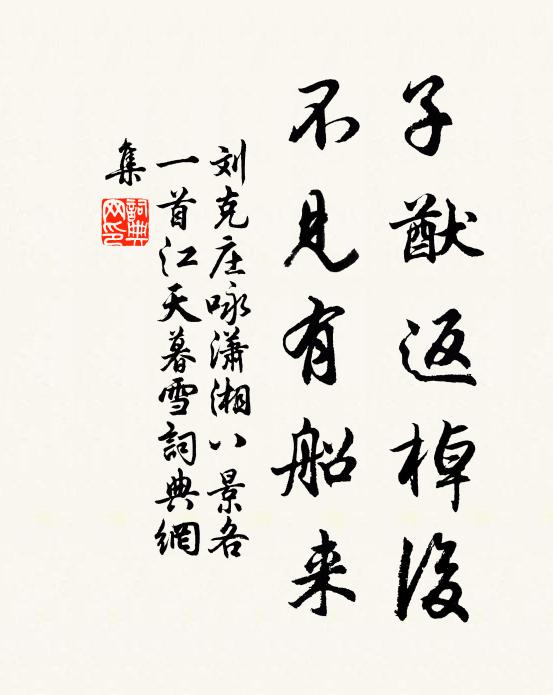 子猷返棹後
不见有船来
刘克庄咏瀟湘八景各
一首江天暮雪詞典網
集
詞典網印